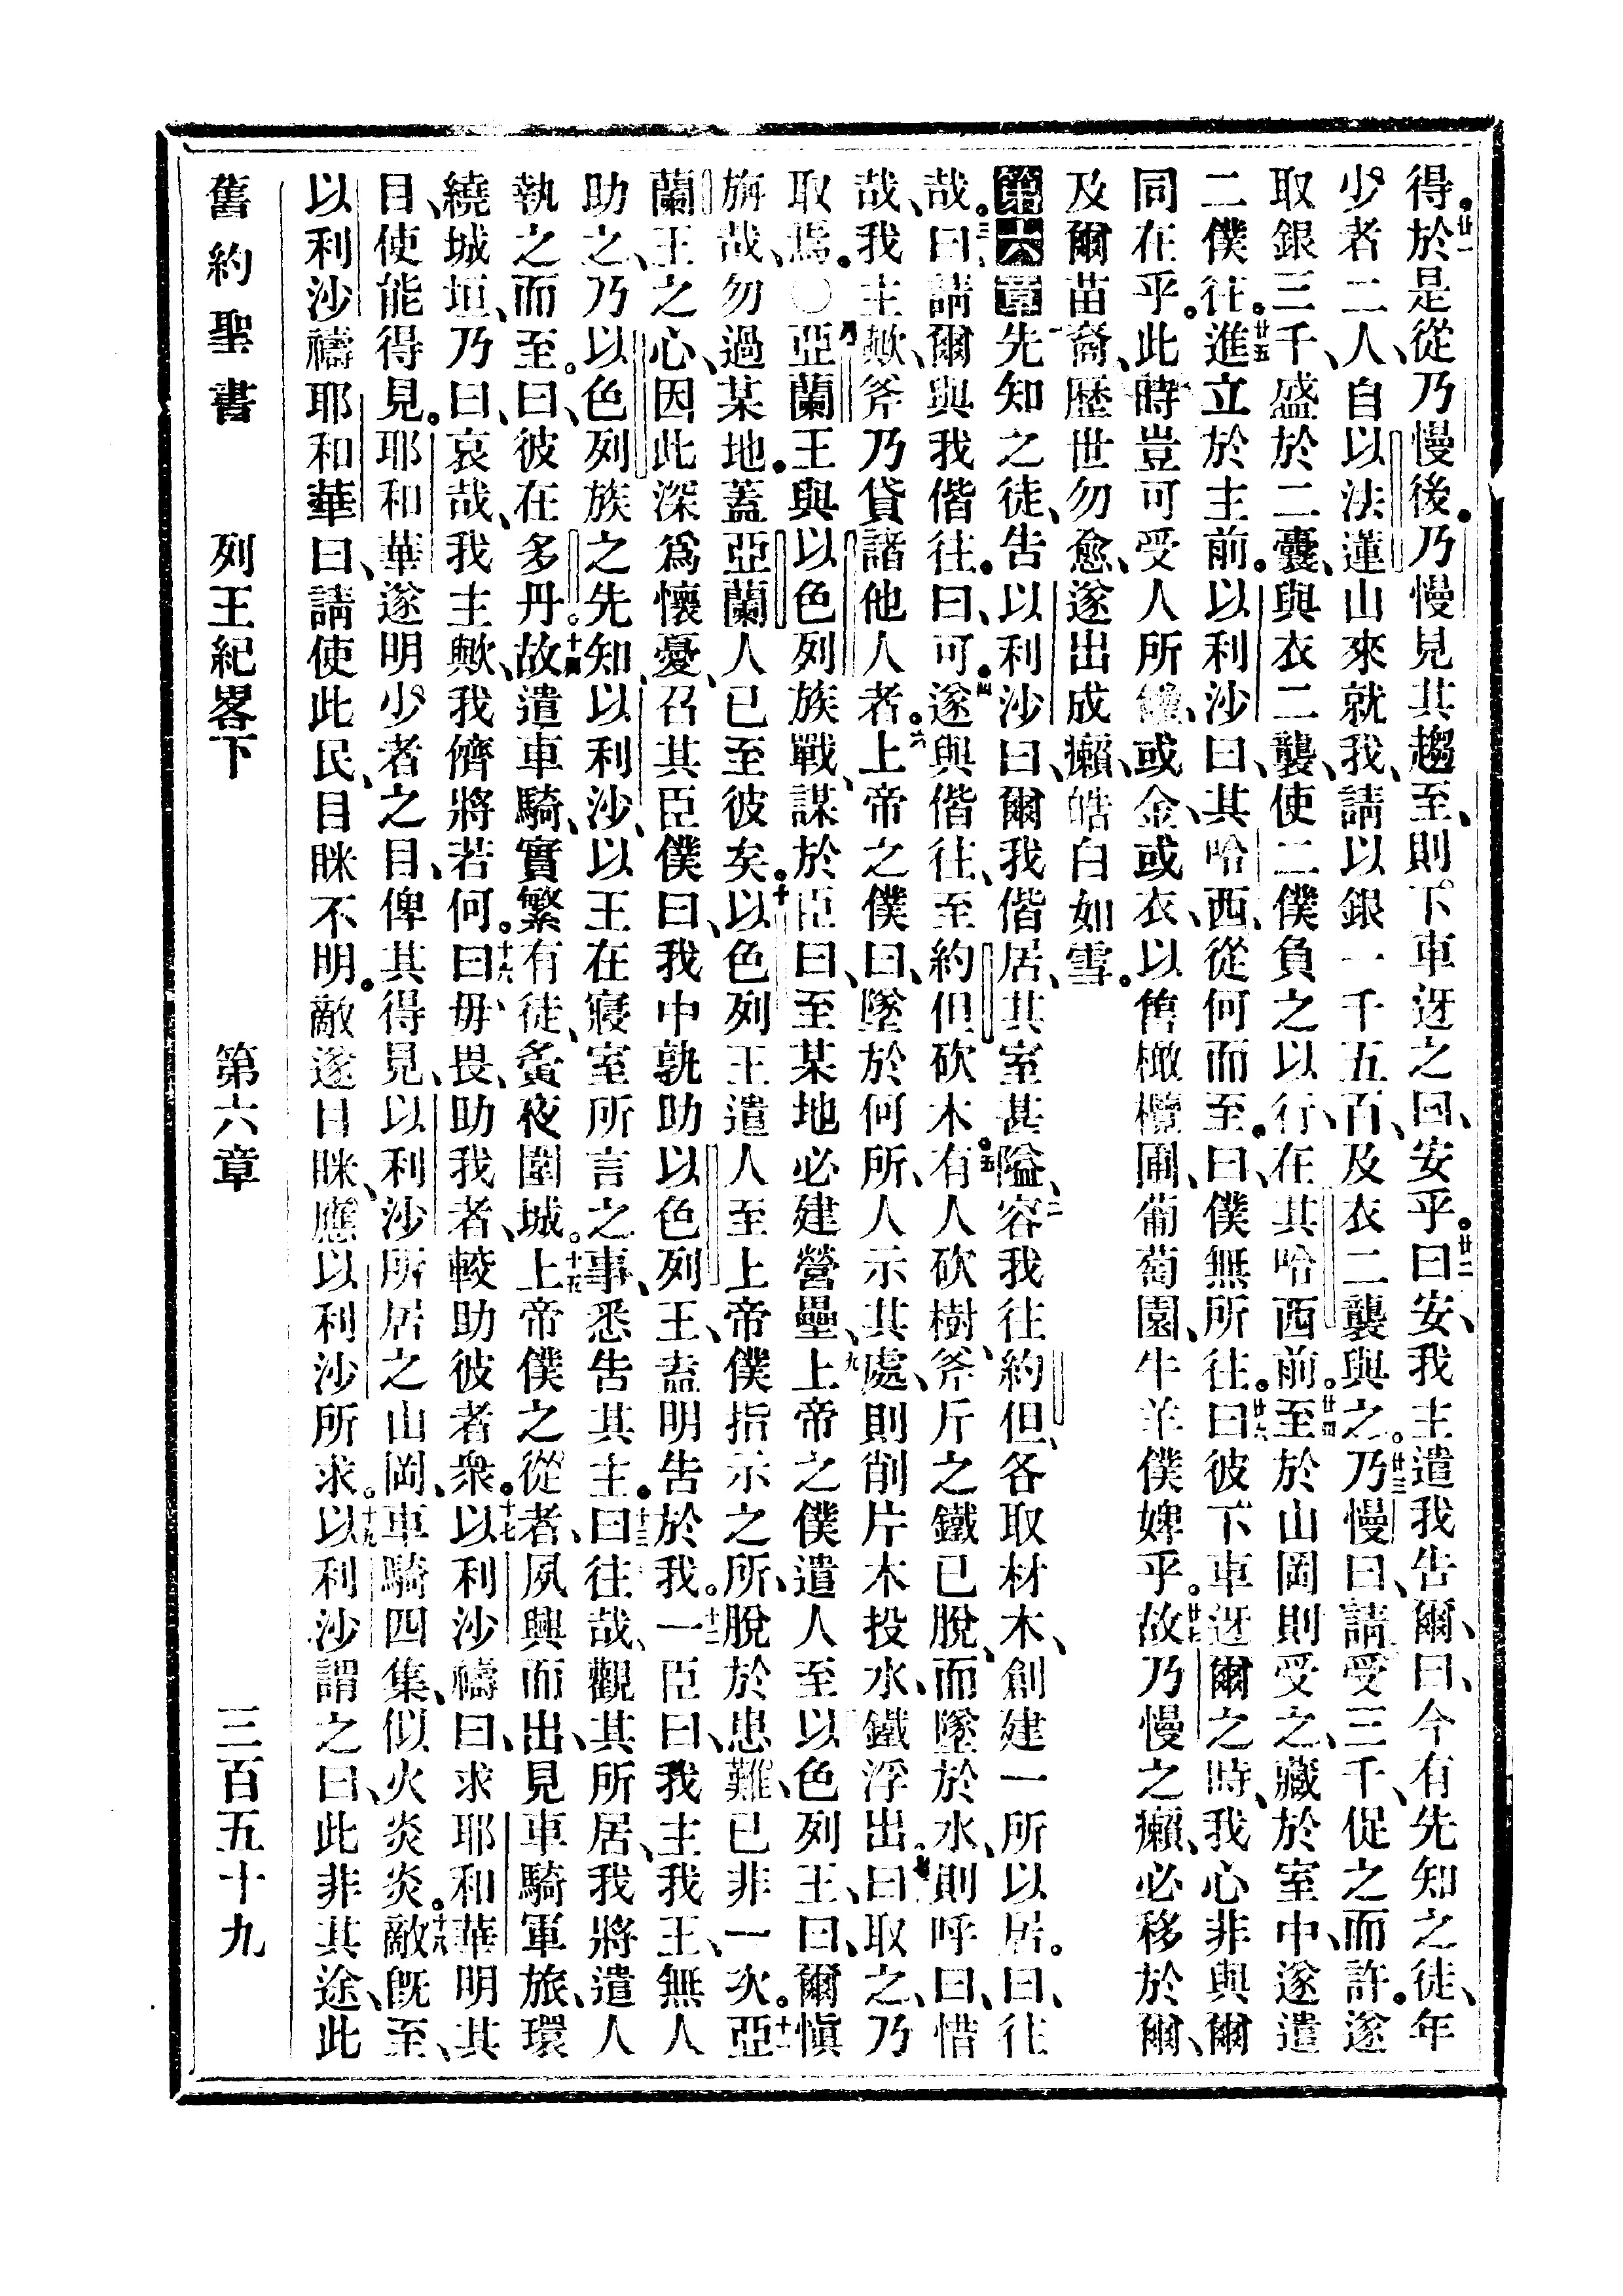 得。廿一於是從、乃慢後。乃慢見其趨至、則下車迓之曰、安乎。廿二曰安、我主遣我告爾、曰、今有先知之徒、年
少者二人、自以法蓮山來就我、請以銀一千五百、及衣二襲與之。廿三乃慢曰、請受三千、促之而許。遂
取銀三千、盛於二囊、與衣二襲、使二僕負之以行、在其哈西前。廿四至於山岡則受之、藏於室中、遂遣
二僕往。廿五進立於主前。以利沙曰、其哈西、從何而至。曰、僕無所往。廿六曰彼下車迓爾之時、我心非與爾
同在乎。此時豈可受人所餽、或金、或衣、以舊橄欖圃、葡萄園、牛羊僕婢乎。廿七故乃慢之癩、必移於爾、
及爾苗裔、歷世勿愈、遂出成癩、皓白如雪。
第六章一先知之徒、告以利沙曰、爾我偕居、其室甚隘、二容我往約但、各取材木、創建一所以居。曰、往
哉。三曰、請爾與我偕往。曰、可。四遂與偕往、至約但砍木。五有人砍樹、斧斤之鐵已脫、而墜於水、則呼曰、惜
哉、我主歟、斧乃貸諸他人者。六上帝之僕曰、墜於何所、人示其處、則削片木投水、鐵浮出。七曰、取之、乃
取焉。○八亞蘭王與以色列族戰、謀於臣曰、至某地必建營壘、九上帝之僕遣人至以色列王、曰、爾愼
旃哉、勿過某地。蓋亞蘭人已至彼矣。十以色列王遣人至上帝僕指示之所、脫於患難、已非一次。十一亞
蘭王之心、因此深爲懷憂、召其臣僕曰、我中孰助以色列王、盍明吿於我。十二一臣曰、我主我王、無人
助之、乃以色列族之先知以利沙、以王在寢室所言之事、悉吿其主。十三曰往哉、觀其所居、我將遣人
執之而至。曰、彼在多丹。十四故遣車騎、實繁有徒、夤夜圍城。十五上帝僕之從者、夙興而出、見車騎軍旅、環
繞城垣、乃曰、哀哉、我主歟、我儕將若何。十六曰、毋畏、助我者、較助彼者衆。十七以利沙禱曰、求耶和華明其
目、使能得見。耶和華遂明少者之目、俾其得見、以利沙所居之山岡、車騎四集、似火炎炎。十八敵旣至、
以利沙禱耶和華曰、請使此民、目眯不明。敵遂目眯、應以利沙所求。十九以利沙謂之曰、此非其途、此
舊約聖書 列王紀畧下 第六章 三百五十九